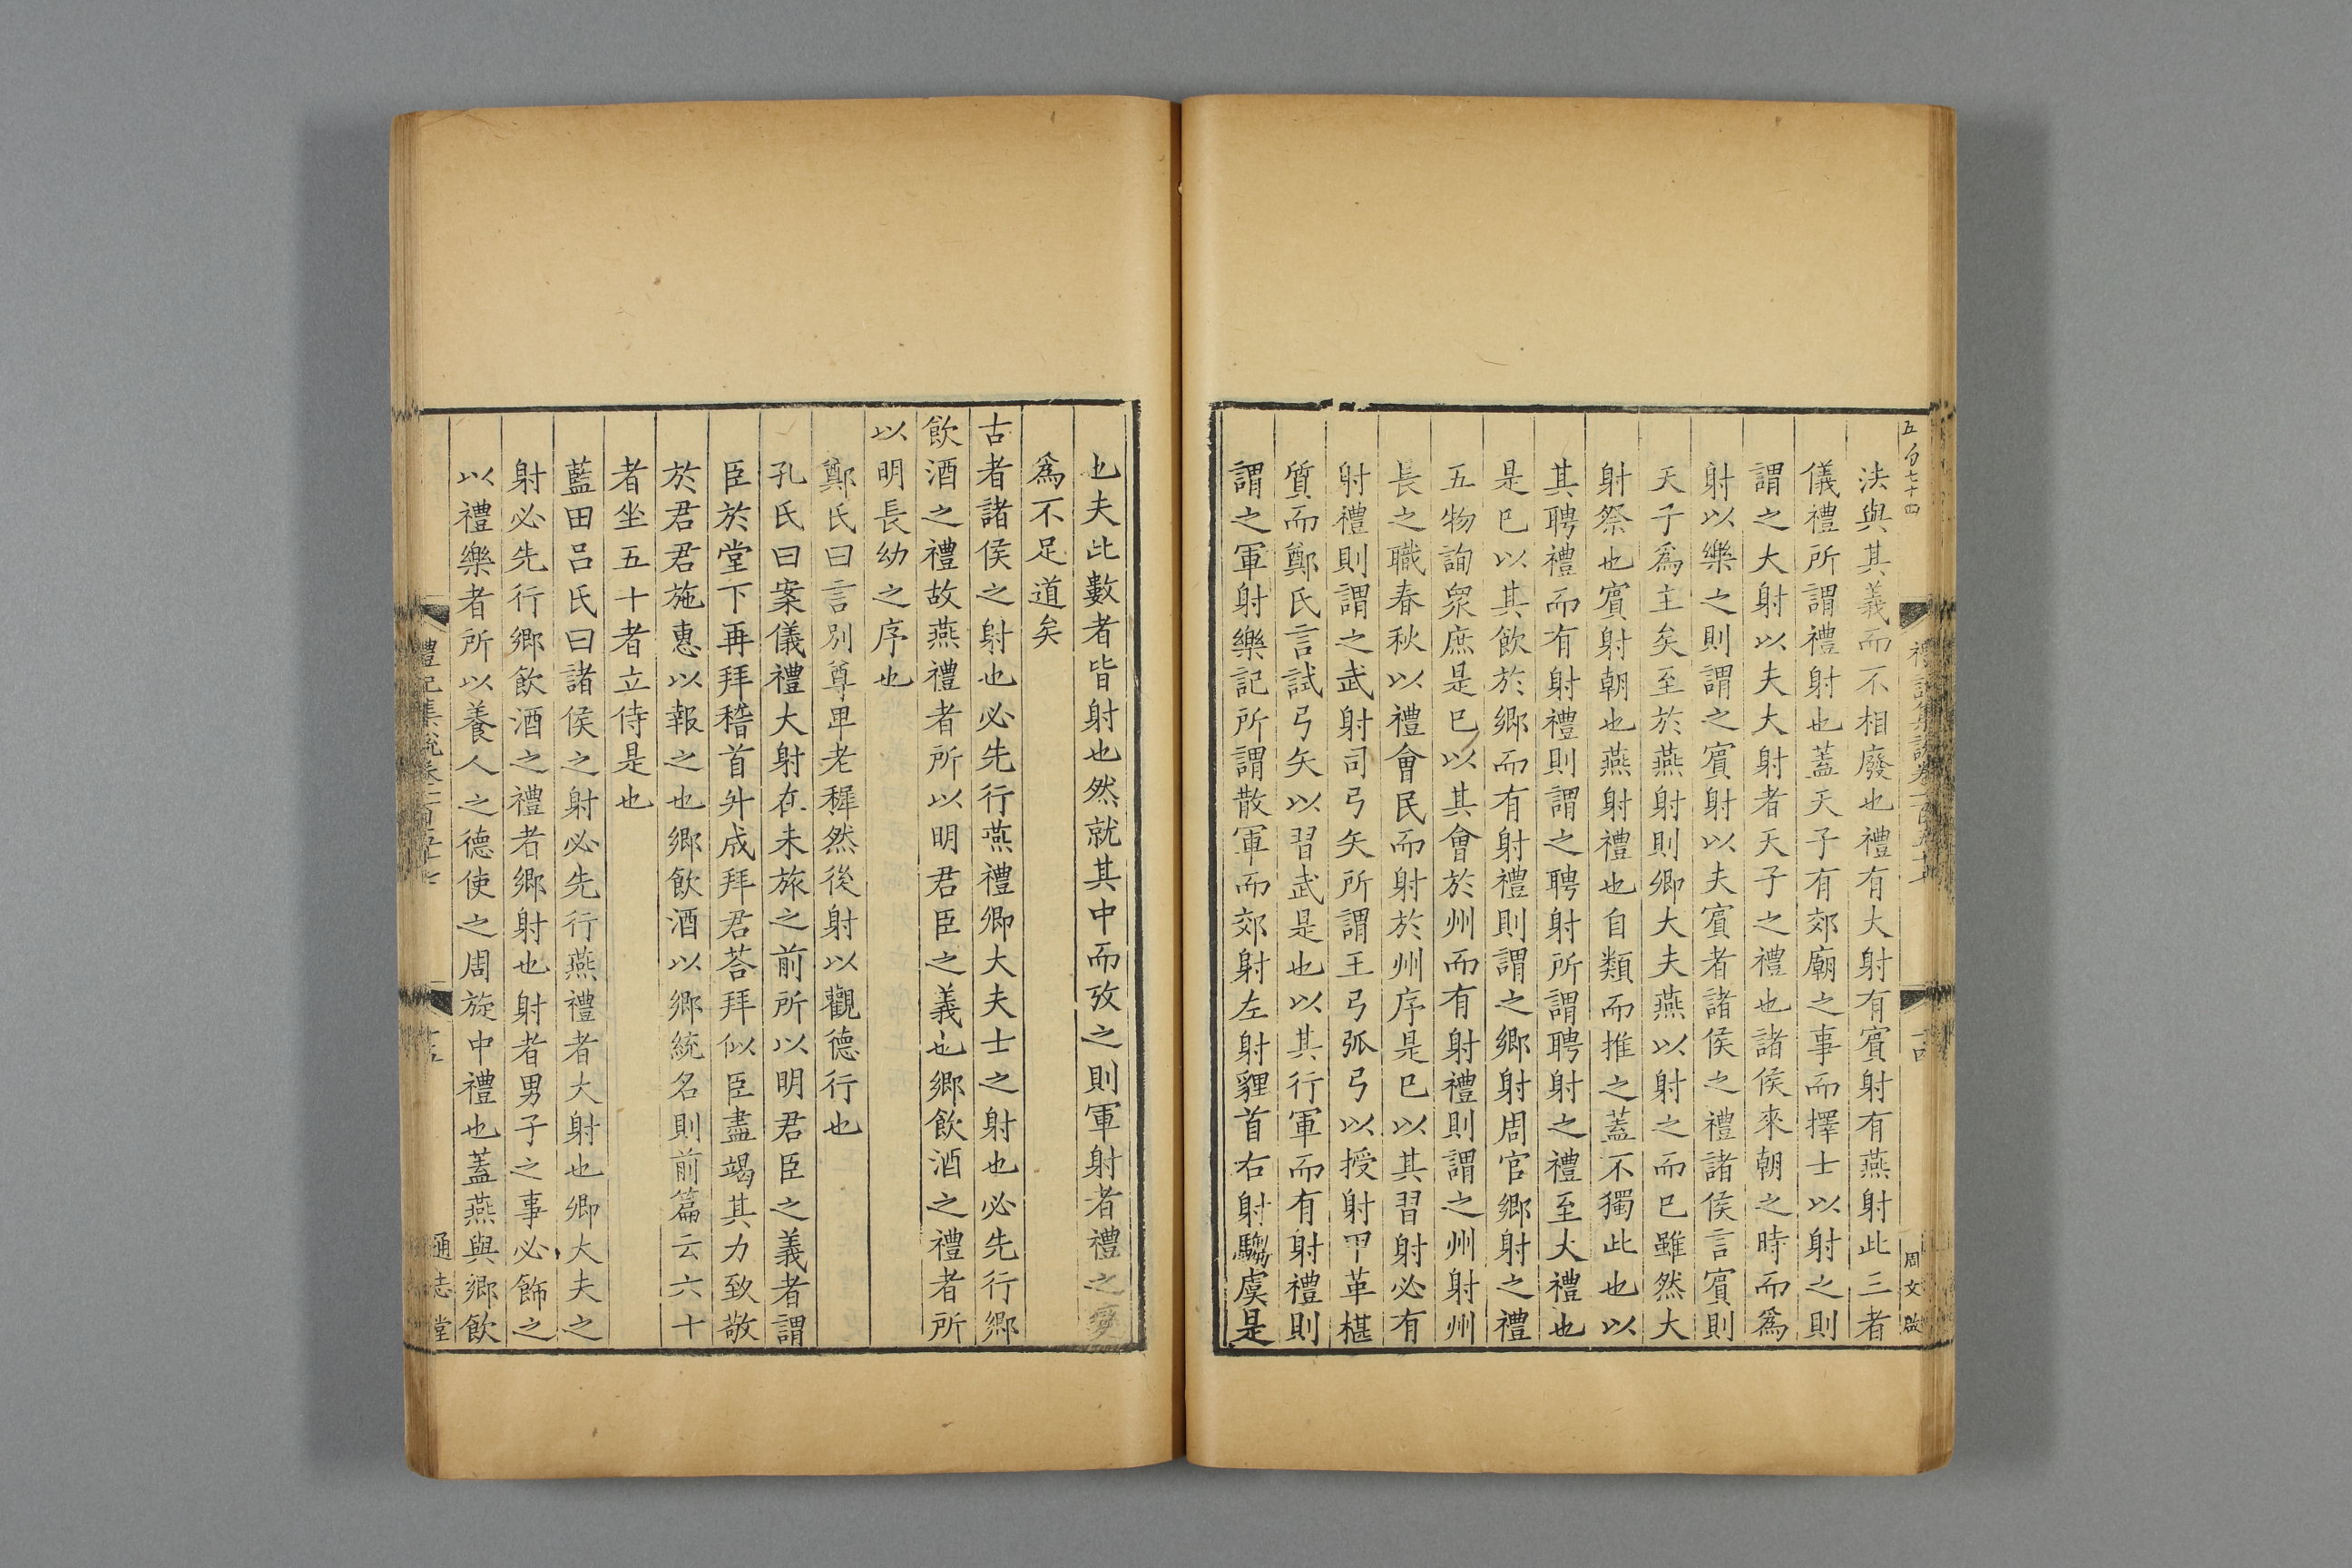 五百七十四
法與其義而不相廢也禮有大射有賓射有燕射此三者
儀禮所謂禮射也蓋天子有郊廟之事而擇士以射之則
謂之大射以夫大射者天子之禮也諸侯來朝之時而爲
射以樂之則謂之賓射以夫賓者諸侯之禮諸侯言賓則
天子爲主矣至於燕射則卿大夫燕以射之而已雖然大
射祭也賓射朝也燕射禮也自類而推之蓋不獨此也以
其聘禮而有射禮則謂之聘射所謂聘射之禮至大禮也
是巳以其飲於鄉而有射禮則謂之鄉射周官鄉射之禮
五物詢衆庶是巳以其會於州而有射禮則謂之州射州
長之職春秋以禮會民而射於州序是巳以其習射必有
射禮則謂之武射司弓矢所謂王弓弧弓以授射甲革椹
質而鄭氏言試弓矢以習武是也以其行軍而有射禮則
謂之軍射樂記所謂散軍而郊射左射貍首右射騶虞是
周文啟
也夫此數者皆射也然就其中而攷之則軍射者禮之變
爲不足道矣
古者諸侯之射也必先行燕禮卿大夫士之射也必先行鄉
飲酒之禮故燕禮者所以明君臣之義也鄉飲酒之禮者所
以明長幼之序也
鄭氏曰言別尊卑老穉然後射以觀德行也
孔氏曰案儀禮大射在未旅之前所以明君臣之義者謂
臣於堂下再拜稽首升成拜君荅拜似臣盡竭其力致敬
於君君施惠以報之也鄉飲酒以鄉統名則前篇云六十
者坐五十者立侍是也
藍田呂氏曰諸侯之射必先行燕禮者大射也卿大夫之
射必先行鄉飲酒之禮者鄉射也射者男子之事必飾之
以禮樂者所以養人之德使之周旋中禮也蓋燕與鄉飲
禮記集說卷一百五十七
十五
通志堂